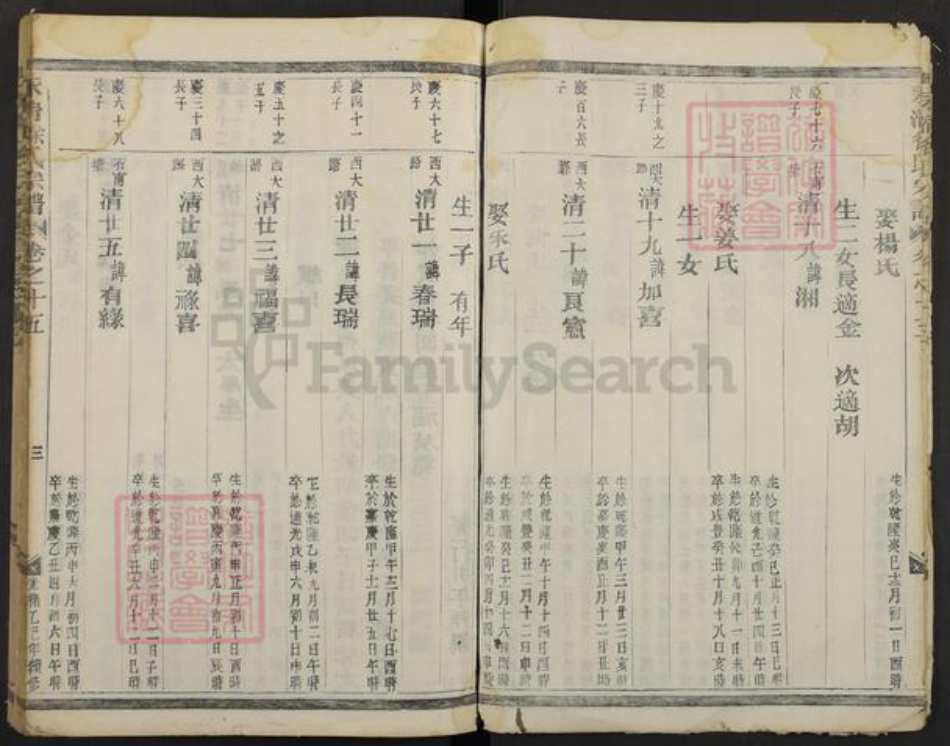 娶楊氏
生於乾隆癸巳十二月初一日酉時
生二女長適金 次適胡
慶七十六長子
清十八諱湘
生於乾隆癸巳正月十三日巳時
卒於道光己酉十月廿四日午時
娶姜氏
卒於咸豐癸丑十月十八日亥時
生一女
慶十九之三子
西大路
清十九諱加喜
生於乾隆甲午三月廿三日亥時
慶百六長子
西大路
清二十諱良憲
生於乾隆甲午十月十四日酉時
娶朱氏
生於乾隆癸巳十二月十六日酉時
生一子 有年
慶六十七長子
西大路
清廿一諱春瑞
生於乾隆甲午十二月十七日酉時
卒於嘉慶甲子十二月廿五日午時
慶四十一長子
西大路
清廿二諱長瑞
慶五十之五子
西大路
清廿三諱福喜
生於乾隆乙未九月初二日午時
卒於道光戊申六月初十日申時
慶三十四長子
西大路
清廿四諱祿喜
生於乾隆丙申正月初十日酉時
卒於嘉慶丙寅九月初九日辰時
慶六十八長子
清廿五諱有緣
卒於道光辛丑六月十二日巳時
生於乾隆丙申六月初四日酉時
卒於嘉慶乙丑四月初六日午時
三
光緒乙巳年續修
FamilySearch